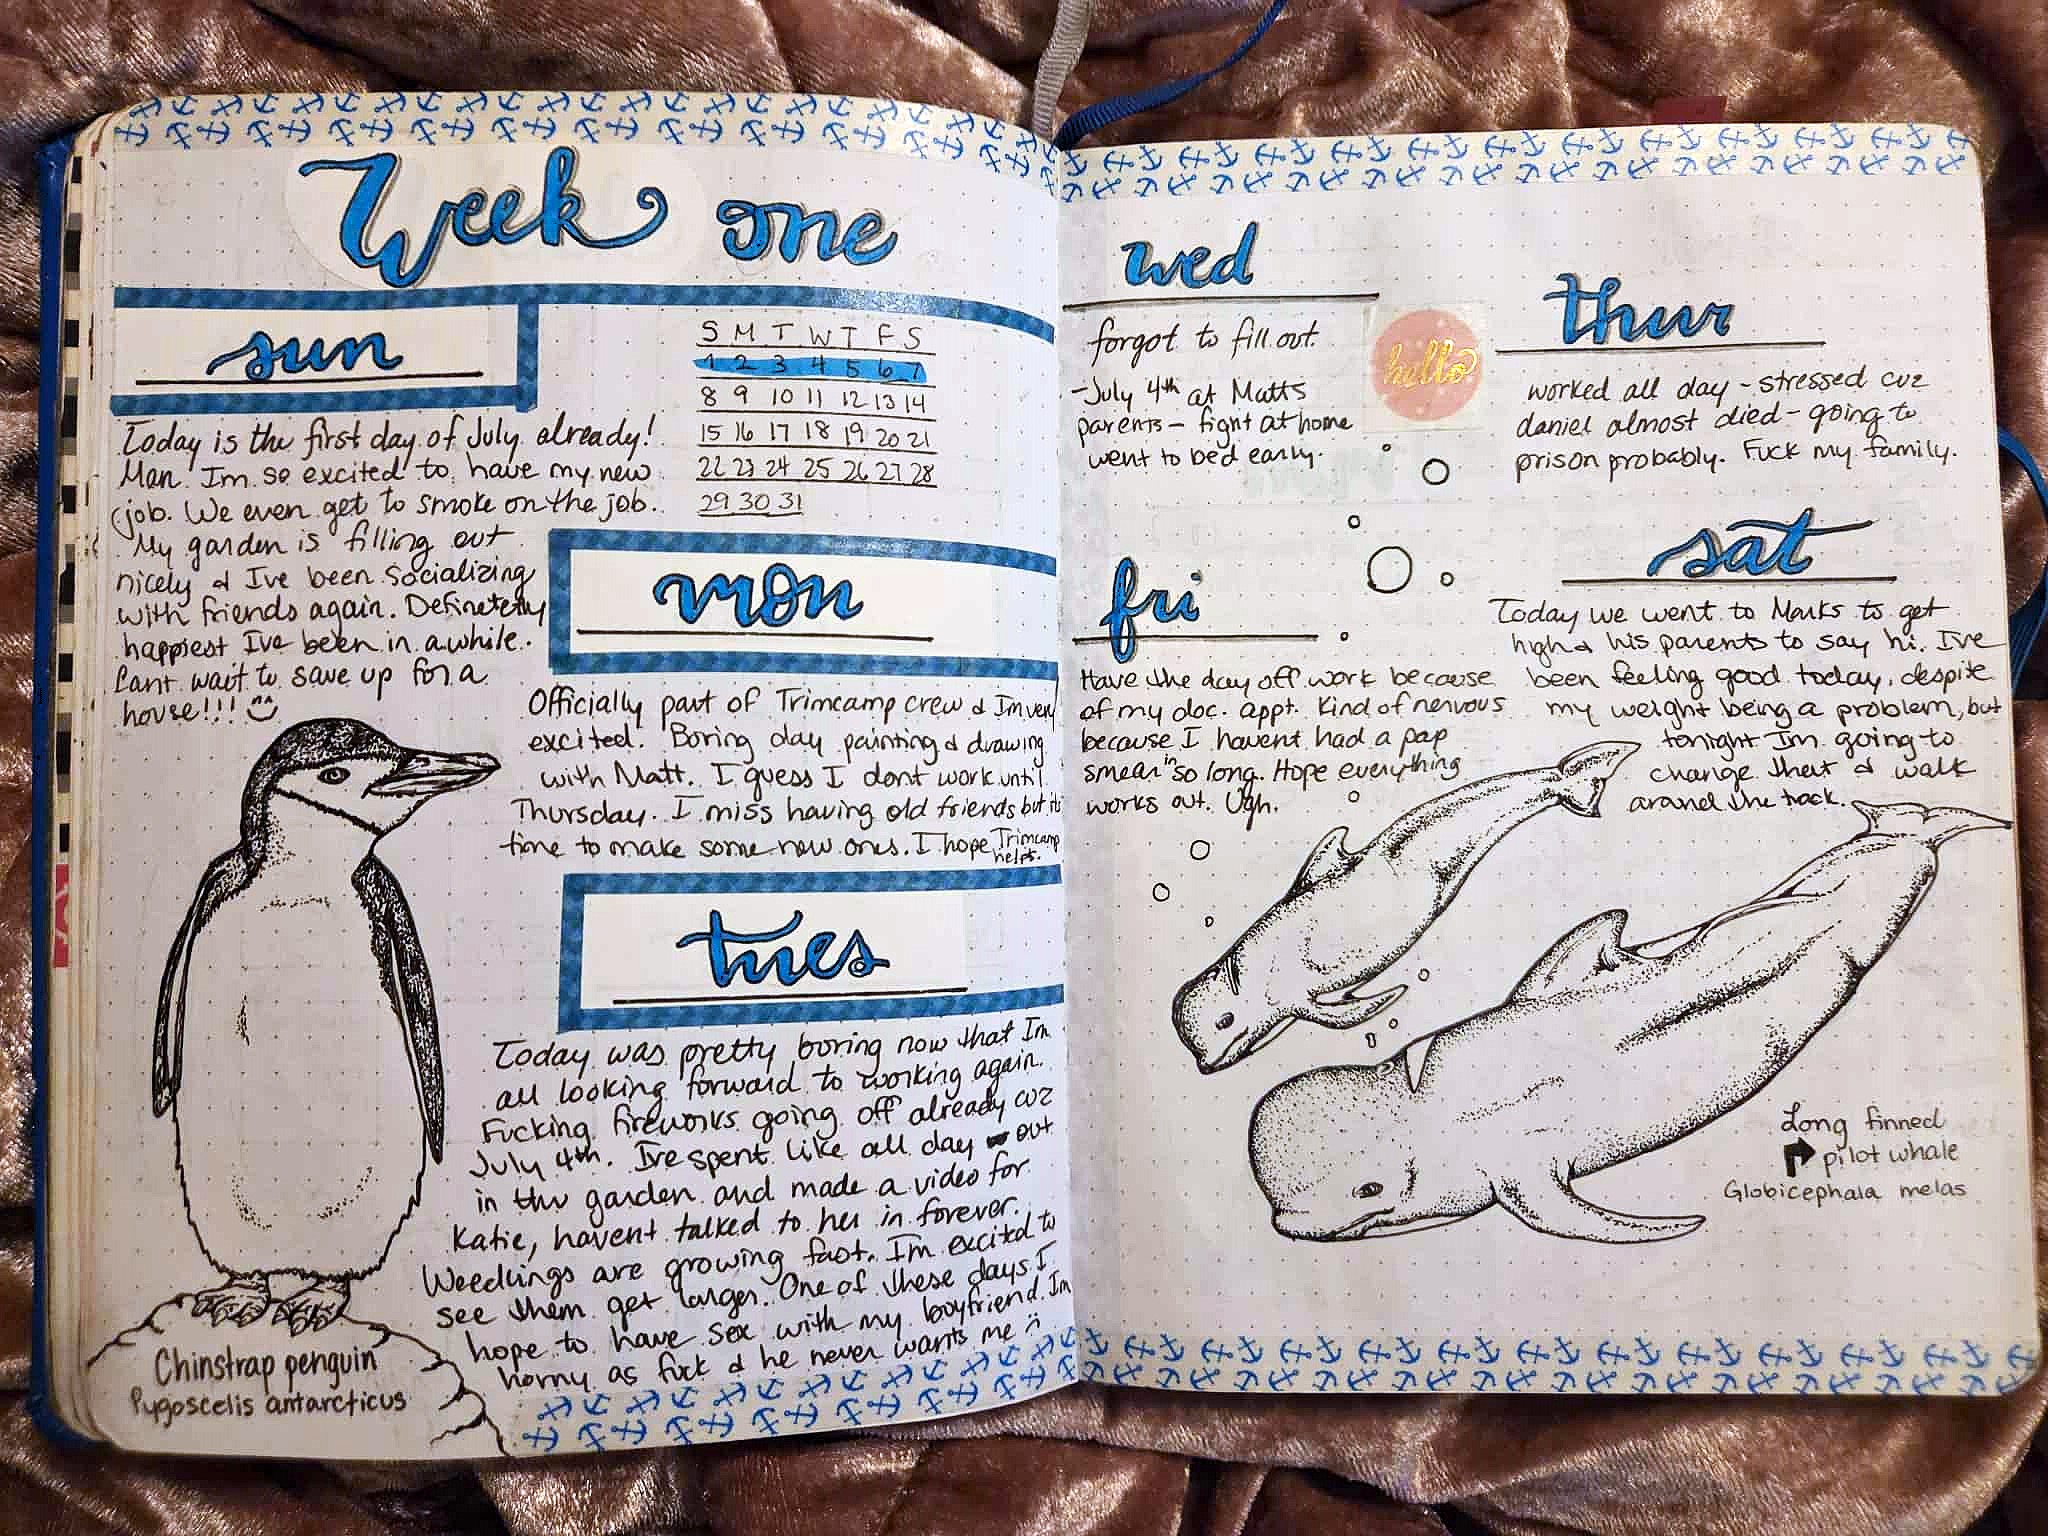 Week one
sun
Today is the first day of July already!
Man. Im so excited to have my new
job. We even get to smoke on the job.
My garden is filling out
nicely & I've been socializing
with friends again.
happiest I've been in a while.
Cant wait to save up for a
house!!!
S M T W T F S
1 2 3 4 5 6 7
8 9 10 11 12 13 14
15 16 17 18 19 20 21
22 23 24 25 26 27 28
29 30 31
mon
Officially part of Trimcamp crew & Im very
excited. Boring day painting & drawing
with Matt. I guess I dont work until
Thursday. I miss having old friends but its
time to make some new ones. I hope Trimcamp
helps.
tues
Today was pretty boring now that Im
all looking forward to working again.
Fucking fireworks going off already cuz
July 4th. I've spent like all day out
in the garden and made a video for
Katie, havent talked to her in forever.
Weedlings are growing fast. I'm excited to
see them get larger. One of these days I
hope to have sex with my boyfriend. Im
horny as fuck & he never wants me :(
Chinstrap penguin
Pygoscelis antarcticus
wed
forgot to fill out.
- July 4th at Matts
parents - fight at home
went to bed early.
hello
thur
worked all day - stressed cuz
daniel almost died - going to
prison probably. Fuck my family.
fri
Have the day off work because
of my doc. appt. Kind of nervous
because I havent had a pap
smear in so long. Hope everything
works out. Ugh.
sat
Today we went to Marks to get
high & his parents to say hi. I've
been feeling good today, despite
my weight being a problem, but
tonight Im going to
change that & walk
around the track.
Long finned
pilot whale
Globicephala melas